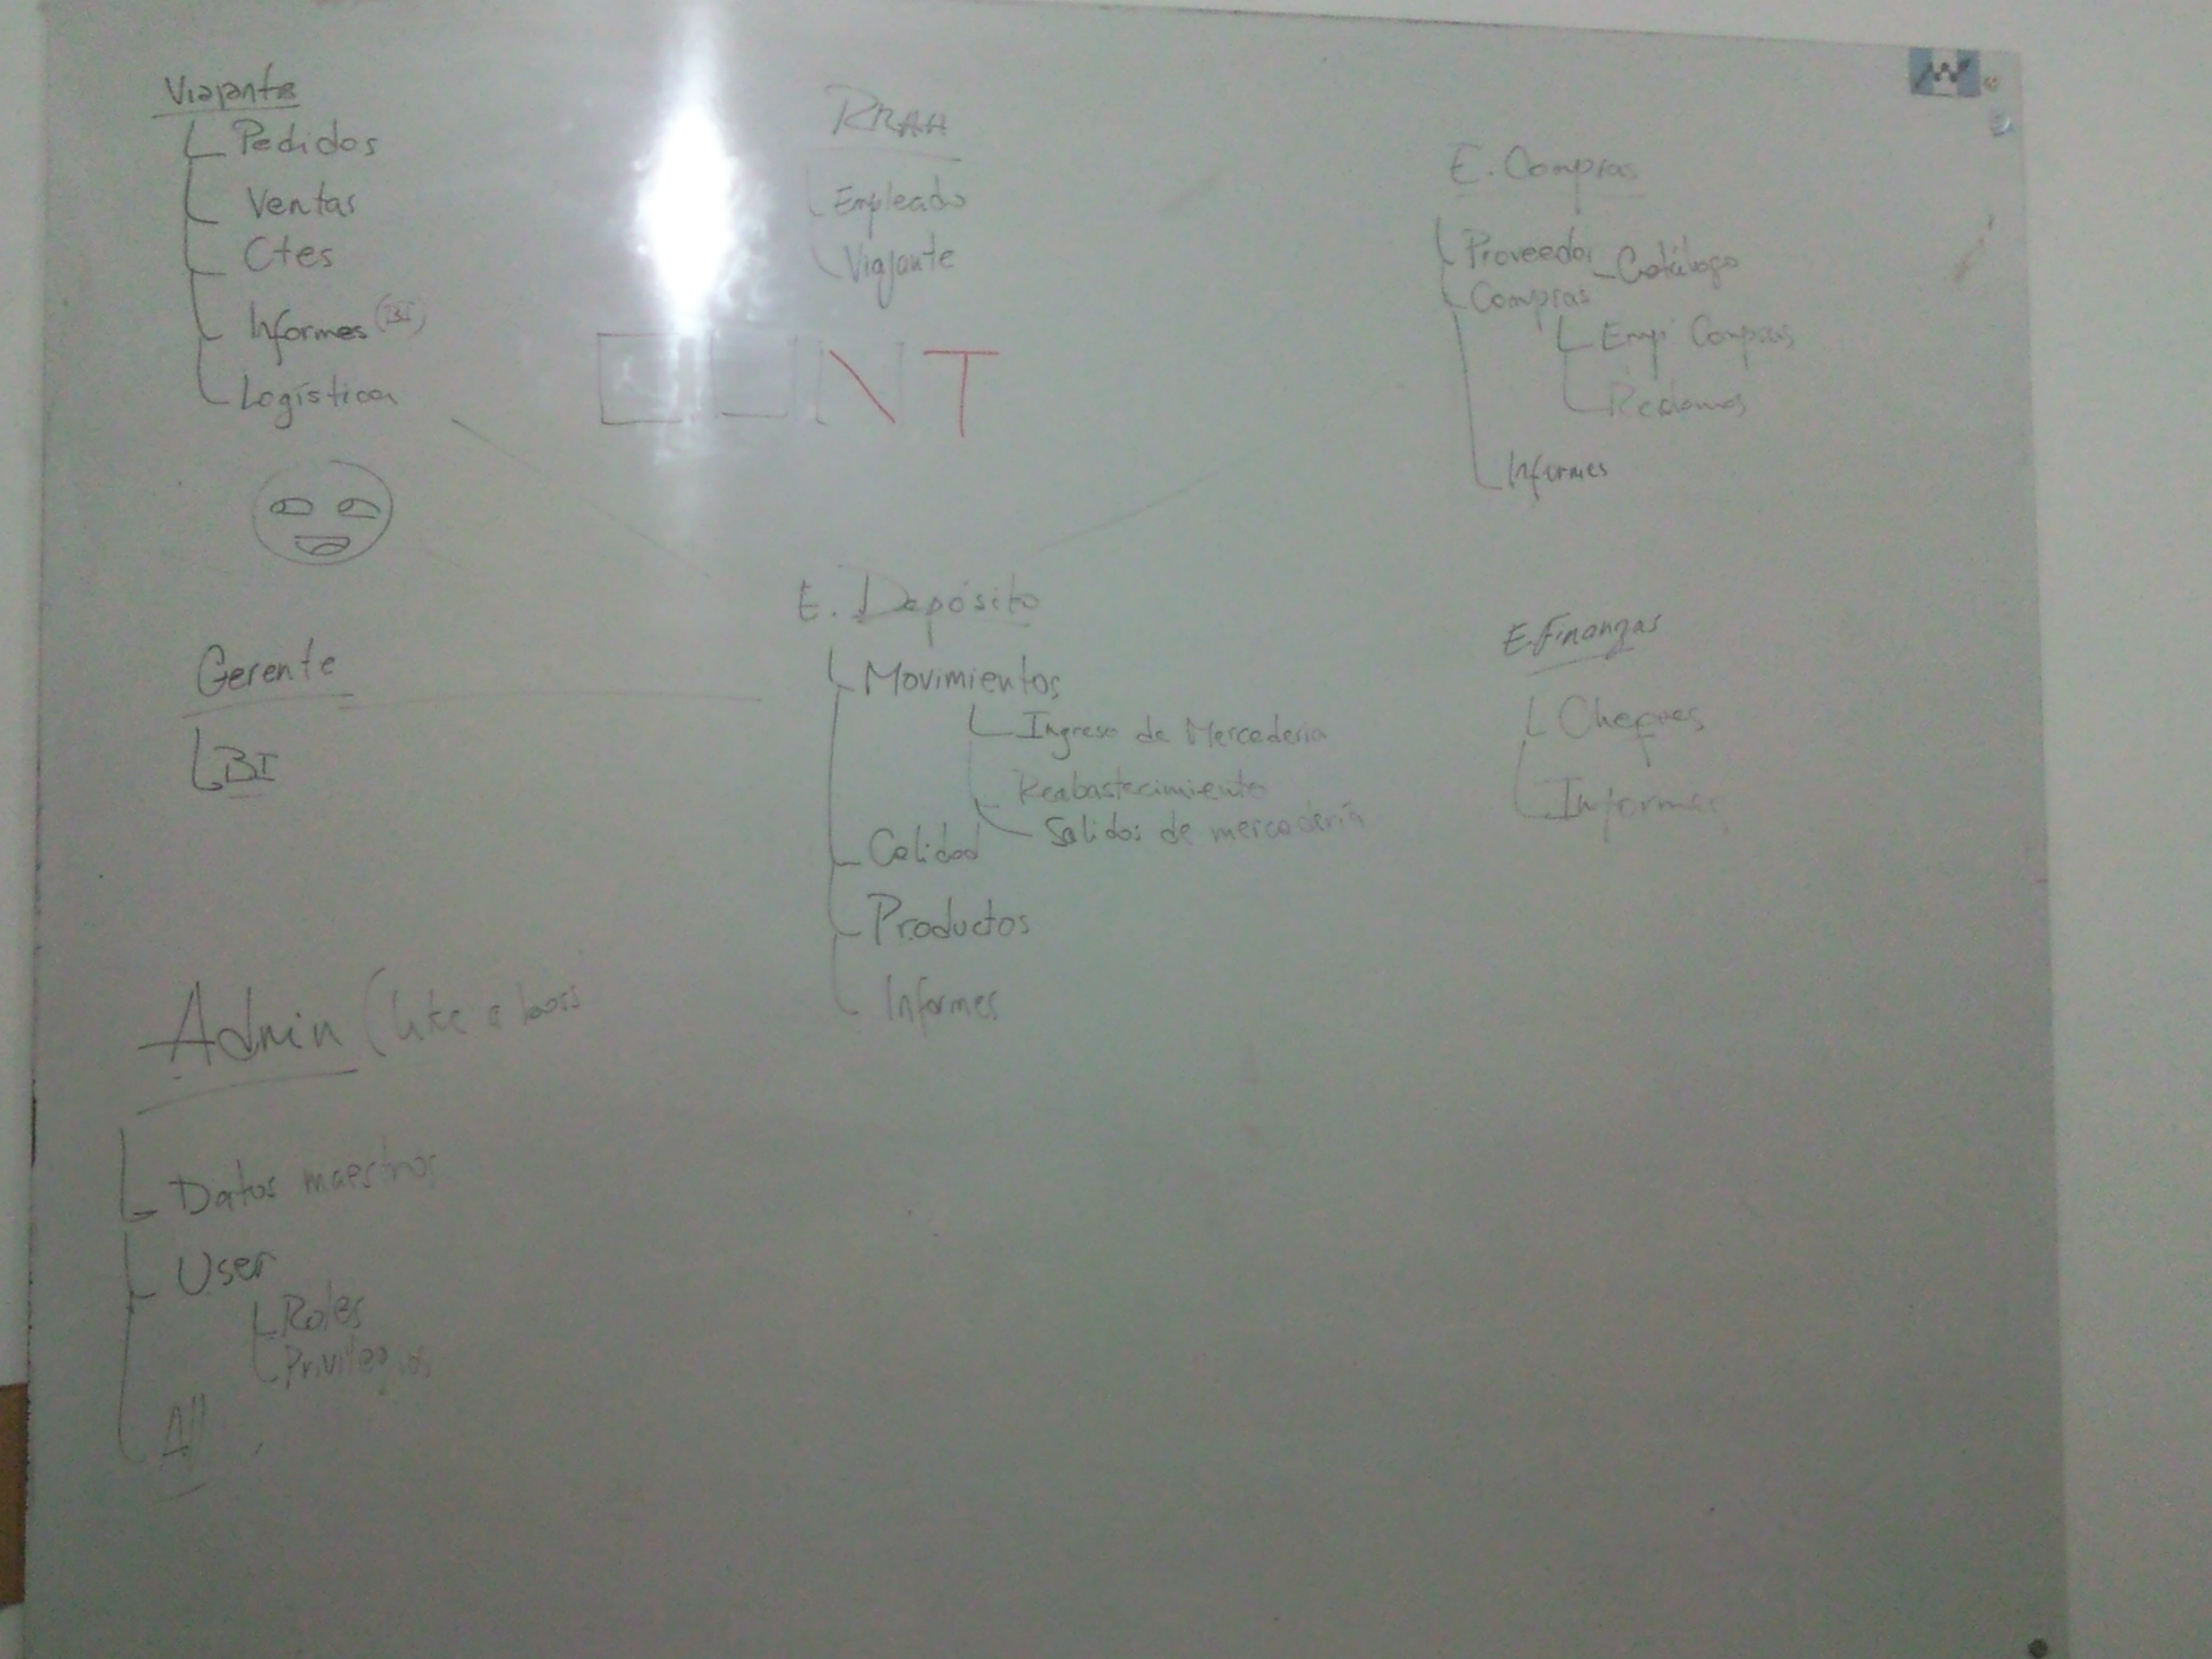 Viajante
Pedidos
Ventas
Ctes
Informes (BI)
Logística
RRHH
Empleado
Viajante
NT
E. Compras
Proveedor - Catálogo
Compras
Emp Compras
Reclamos
Informes
Gerente
BI
E. Depósito
Movimientos
Ingreso de Mercaderia
Reabastecimiento
Salidas de mercadería
Calidad
Productos
Informes
E. Finanzas
Cheques
Informes
Admin (like a boss
Datos maestros
User
Roles
Privilegios
All